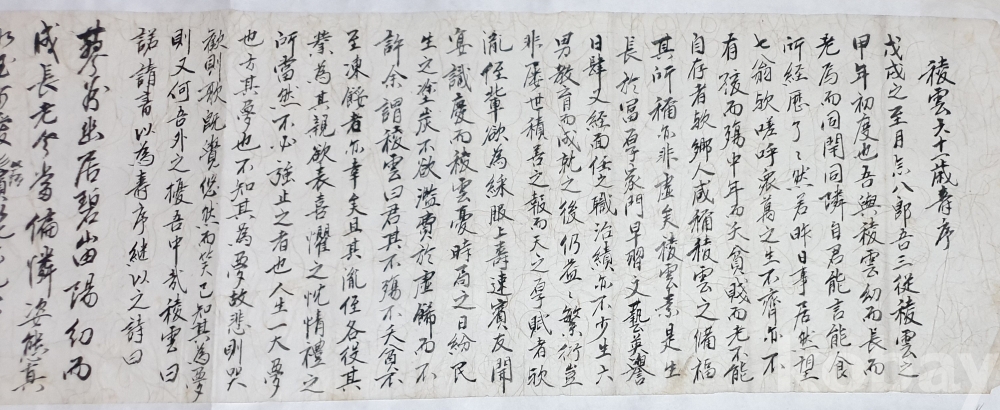 稜雲六十一歲壽序
戊戌之至月念八卽吾三從稜雲之
甲年初度也吾與稜雲幼而長而
老焉而同閈同隣自君能言能食
所經歷了々然若昨日事居然望
七翁歟嗟呼衆萬之生不齊亦不
有孩而殤中年而夭貧賤而老不能
自存者歟鄉人咸稱稜雲之備福
其所稱亦非虛矣稜雲素是生
長於富厚家門早習文藝並譽
日肆又經面任之職治績亦不少生六
男敎育而成就之後仍益々繁衍豈
非屢世積善之報而天之厚賦者歟
胤侄輩欲爲綵服上壽速賓友開
宴識慶而稜雲憂時局之日紛民
生之塗炭不欲濫費於虛歸而不
許余謂稜雲曰君其不殤不夭貧不
至凍餒者亦幸矣且其胤侄各役其
業爲其親欲表喜懼之忱情禮之
所當然不必強止之者也人生一大夢
也方其夢也不知其爲夢故悲則哭
歡則歌旣覺悠然而笑已知其爲夢
則又何吾外之榎吾中哉稜雲曰
諾請書以爲壽序繼以之詩曰
幽居碧山陽幼而
成長老今當偏憐姿態眞